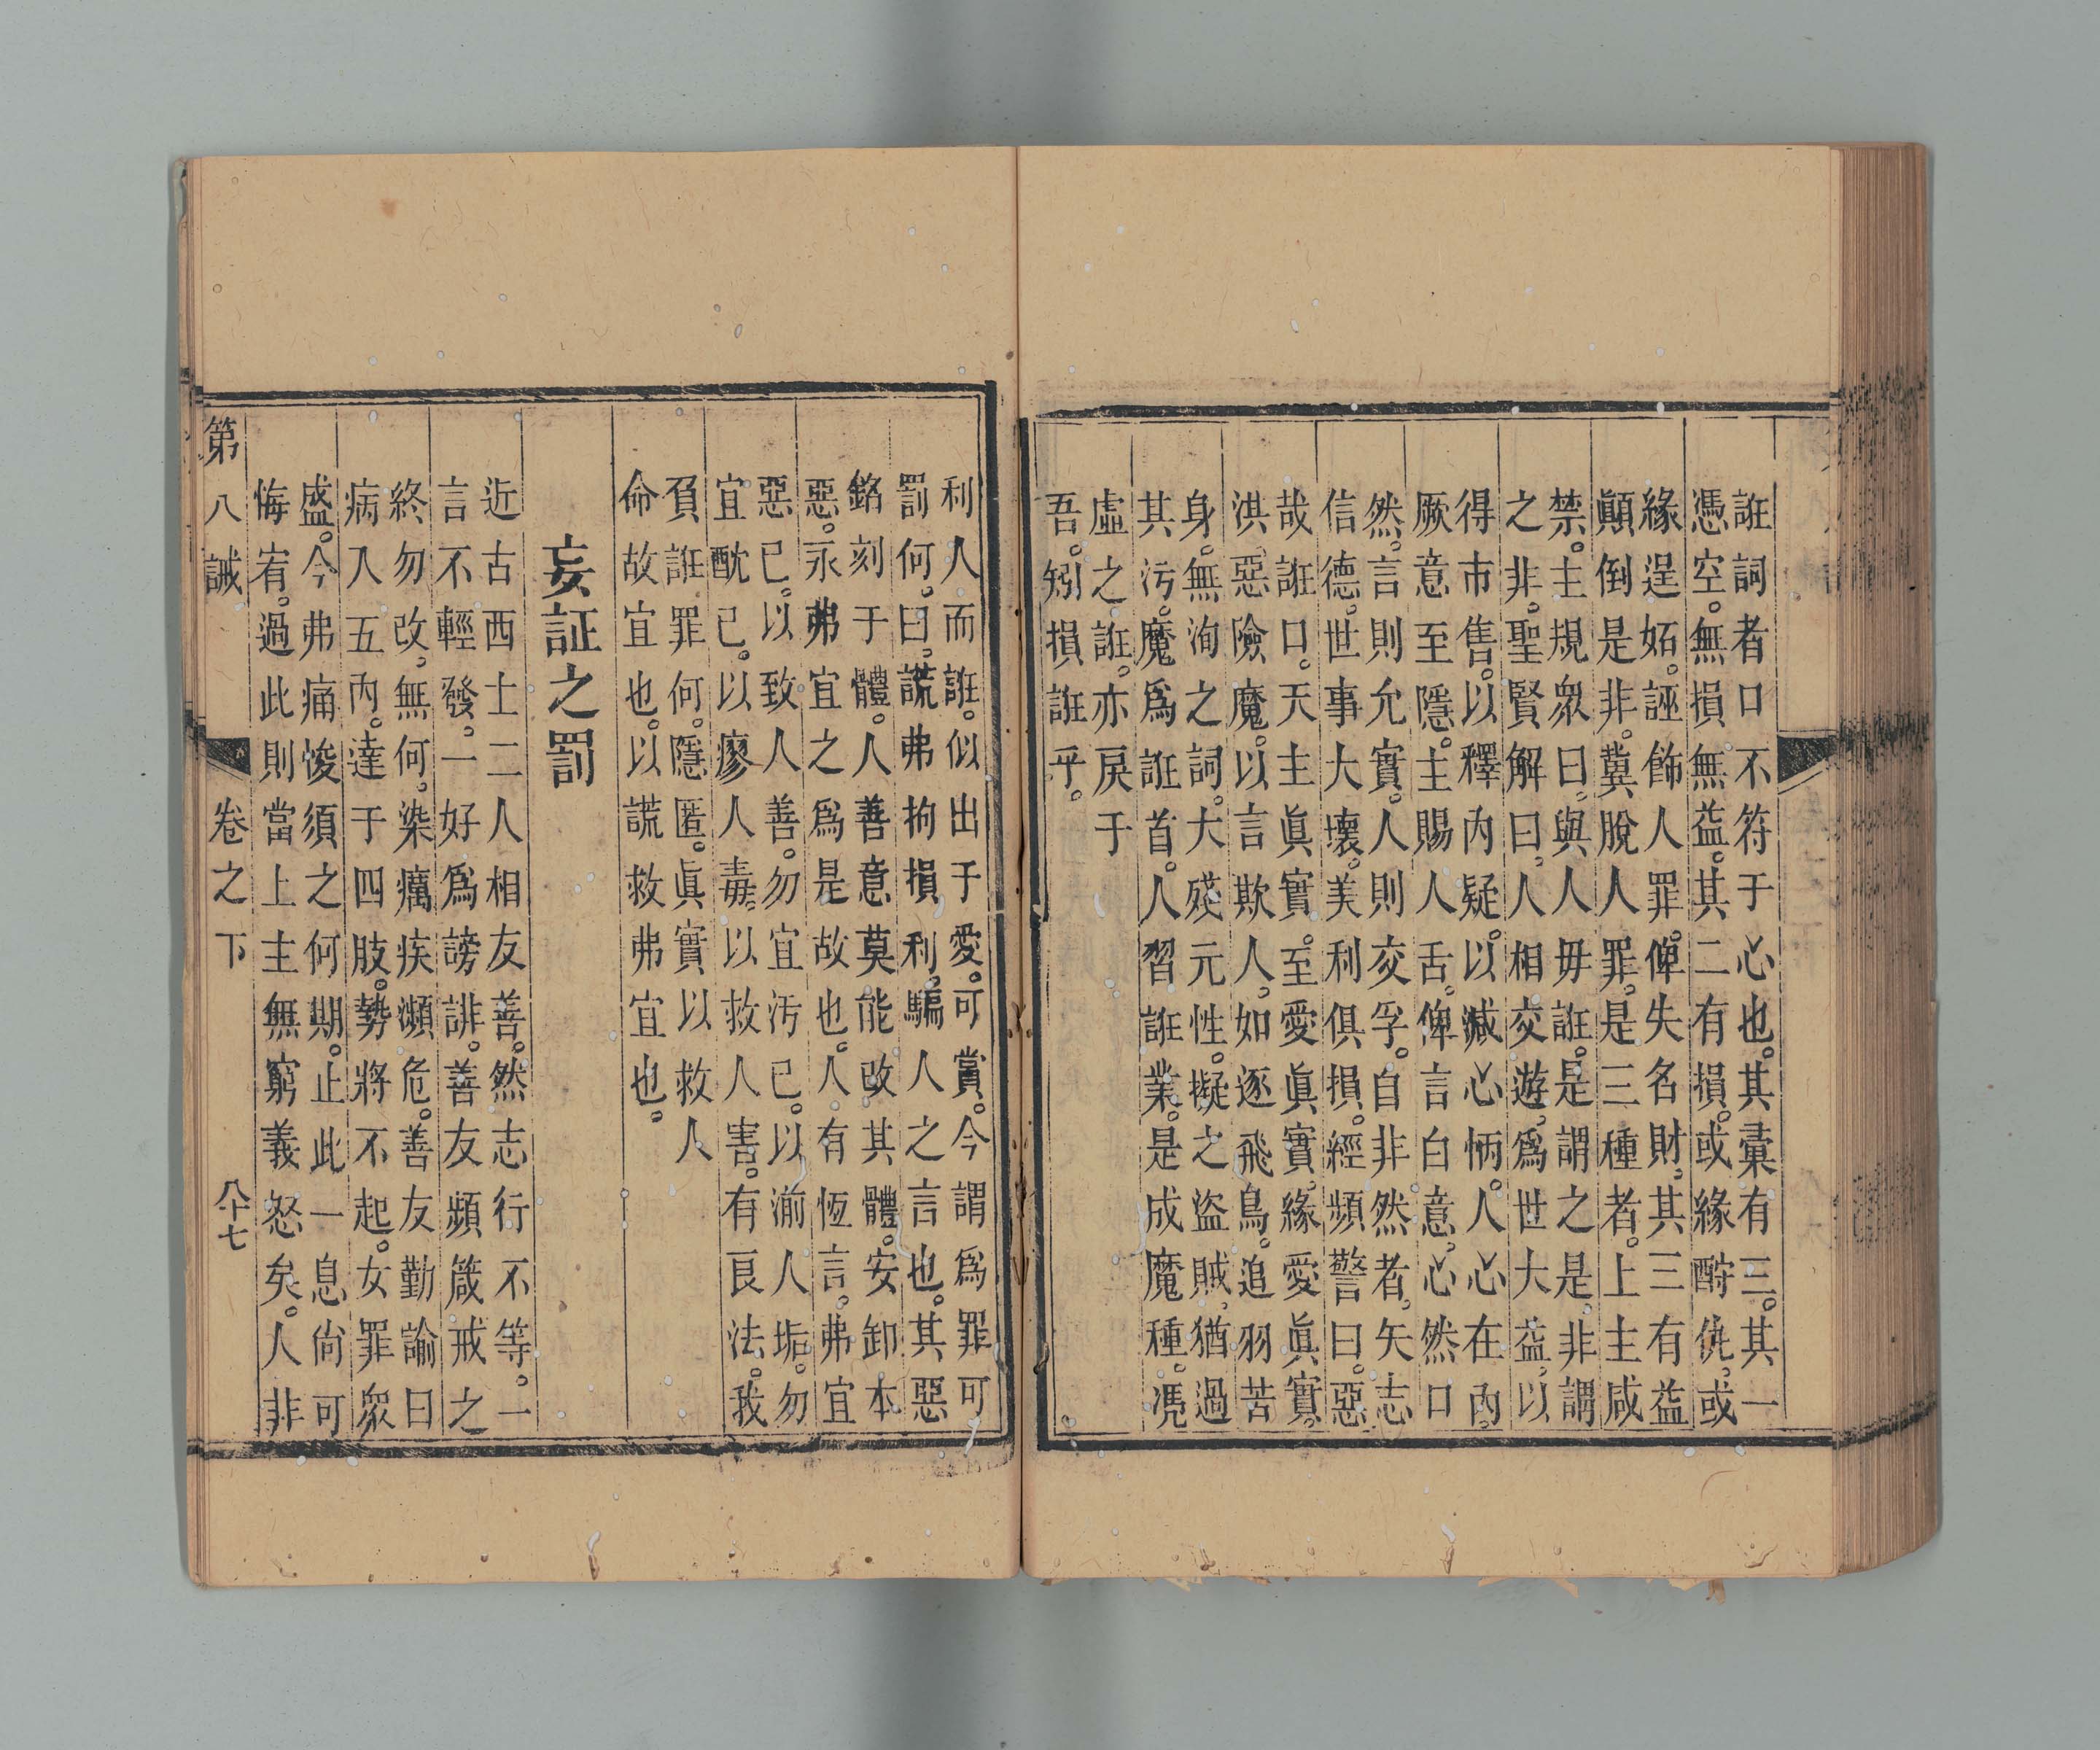 誑詞者口不符于心也。其彙有三。其一
憑空。無損無益。其二有損。或緣酧仇，或
緣逞妬。誣飾人罪。俾失名財，其三有益
顚倒是非。冀脫人罪。是三種者。上主咸
禁。主規衆曰，與人毋誑。是謂之是，非謂
之非。聖賢解曰，人相交遊，爲世大益，以
得市售。以釋內疑。以減心怲。人心在內，
厥意至隱。主賜人舌。俾言白意，心然口
然，言則允實。人則交孚。自非然者，矢志
信德。世事大壞。美利俱損。經頻警曰。惡
哉誑口。天主眞實。至愛眞實，緣愛眞實。
洪惡險魔。以言欺人，如逐飛鳥。追羽苦
身。無洵之詞。大殘元性。擬之盜賊，猶過
其污。魔爲誑首。人習誑業。是成魔種。凴
虛之誑，亦戾于
吾。矧損誑乎。
利人而誑。似出于愛。可賞。今謂爲罪可
罰何。曰，謊弗拘損利，騙人之言也。其惡
銘刻于體。人善意莫能改其體。安卸本
惡。永弗宜之爲是故也。人有恆言。弗宜
惡已。以致人善。勿宜污已。以湔人垢。勿
宜酖已。以瘳人毒。以救人害。有良法。我
負誑罪何。隱匿。眞實以救人
命故宜也。以謊救弗宜也。
妄証之罰
近古西士二人相友善。然志行不等。一
言不輕發。一好爲謗誹。善友頻箴戒之
終勿改，無何，染癘疾瀕危。善友勤諭曰
病入五內。達于四肢。勢將不起。女罪衆
盛。今弗痛悛須之何期。止此一息尙可
悔宥。過此則當上主無窮義怒矣。人非
第八誡　卷之下　八十七